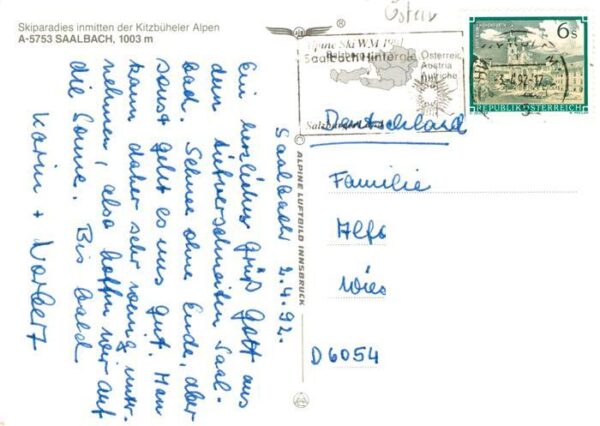 Skiparadies inmitten der Kitzbüheler Alpen
A-5753 SAALBACH, 1003 m
Saalbach 2.4.92.
Ein herzliches Grüß Gott aus
dem tiefverschneiten Saal-
bach. Schnee ohne Ende, aber
sonst geht es uns gut. Man
kann daher sehr wenig unter-
nehmen, also hoffen wir auf
die Sonne. Bis bald
Karin + Norbert
ALPINE LUFTBILD INNSBRUCK
®
Alpine Ski WM 1991
Saalbach Hinterglemm
Österreich
Austria
Autriche
Salzburger Land
6 S
REPUBLIK ÖSTERREICH
Deutschland
Familie
Alfs
Wies
D 6054